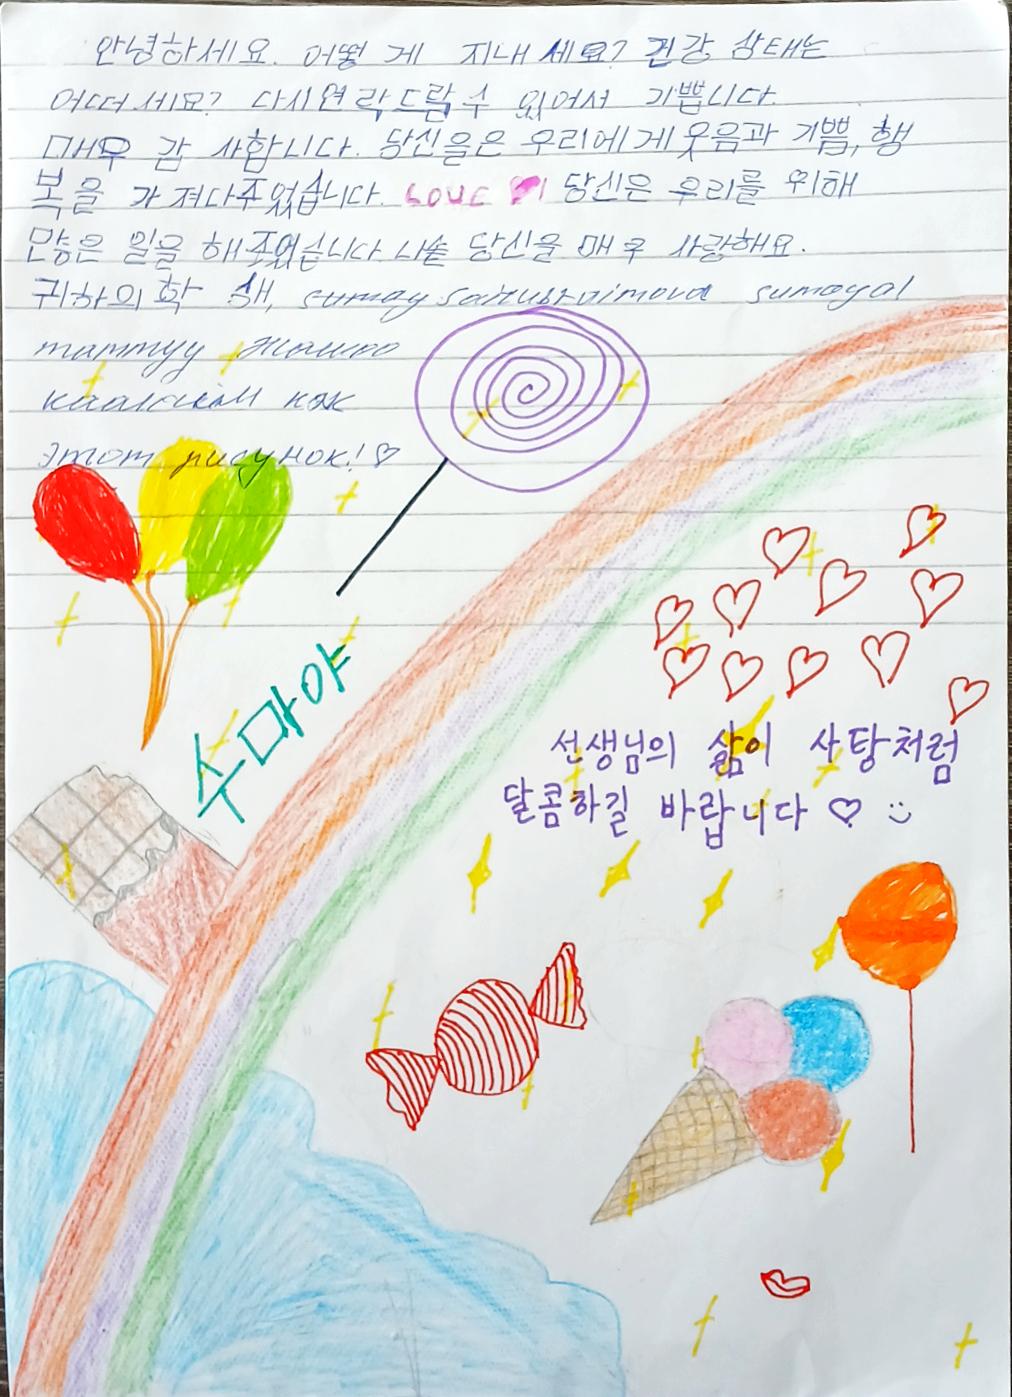 안녕하세요. 어떻게 지내세요? 건강 상태는
어떠세요? 다시 연락드릴 수 있어서 기쁩니다.
매우 감사합니다. 당신을은 우리에게 웃음과 기쁨, 행
복을 가져다주었습니다. LOVE 당신은 우리를 위해
많은 일을 해주었습니다 나는 당신을 매우 사랑해요.
귀하의 학생, sumayal
этот рисунок! ♡
수마야
선생님의 삶이 사탕처럼
달콤하길 바랍니다 ♡